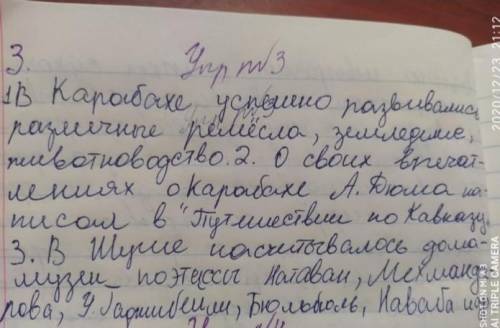 3.
Упр №3
1В Карабахе успешно развивались
различные ремёсла, земледелие,
животноводство. 2. О своих впечат-
лениях о Карабахе А. Дюма на-
писал в "Путешествии по Кавказу.
3. В Шуше насчитывалось дома-
музеи поэтессы Натаван, Мехманда
рова, У. Гаджибейли, Бюльбюль, Навваба
SHOT ON MIX 3
AI TRIPLE CAMERA
2020/12/23 01:12